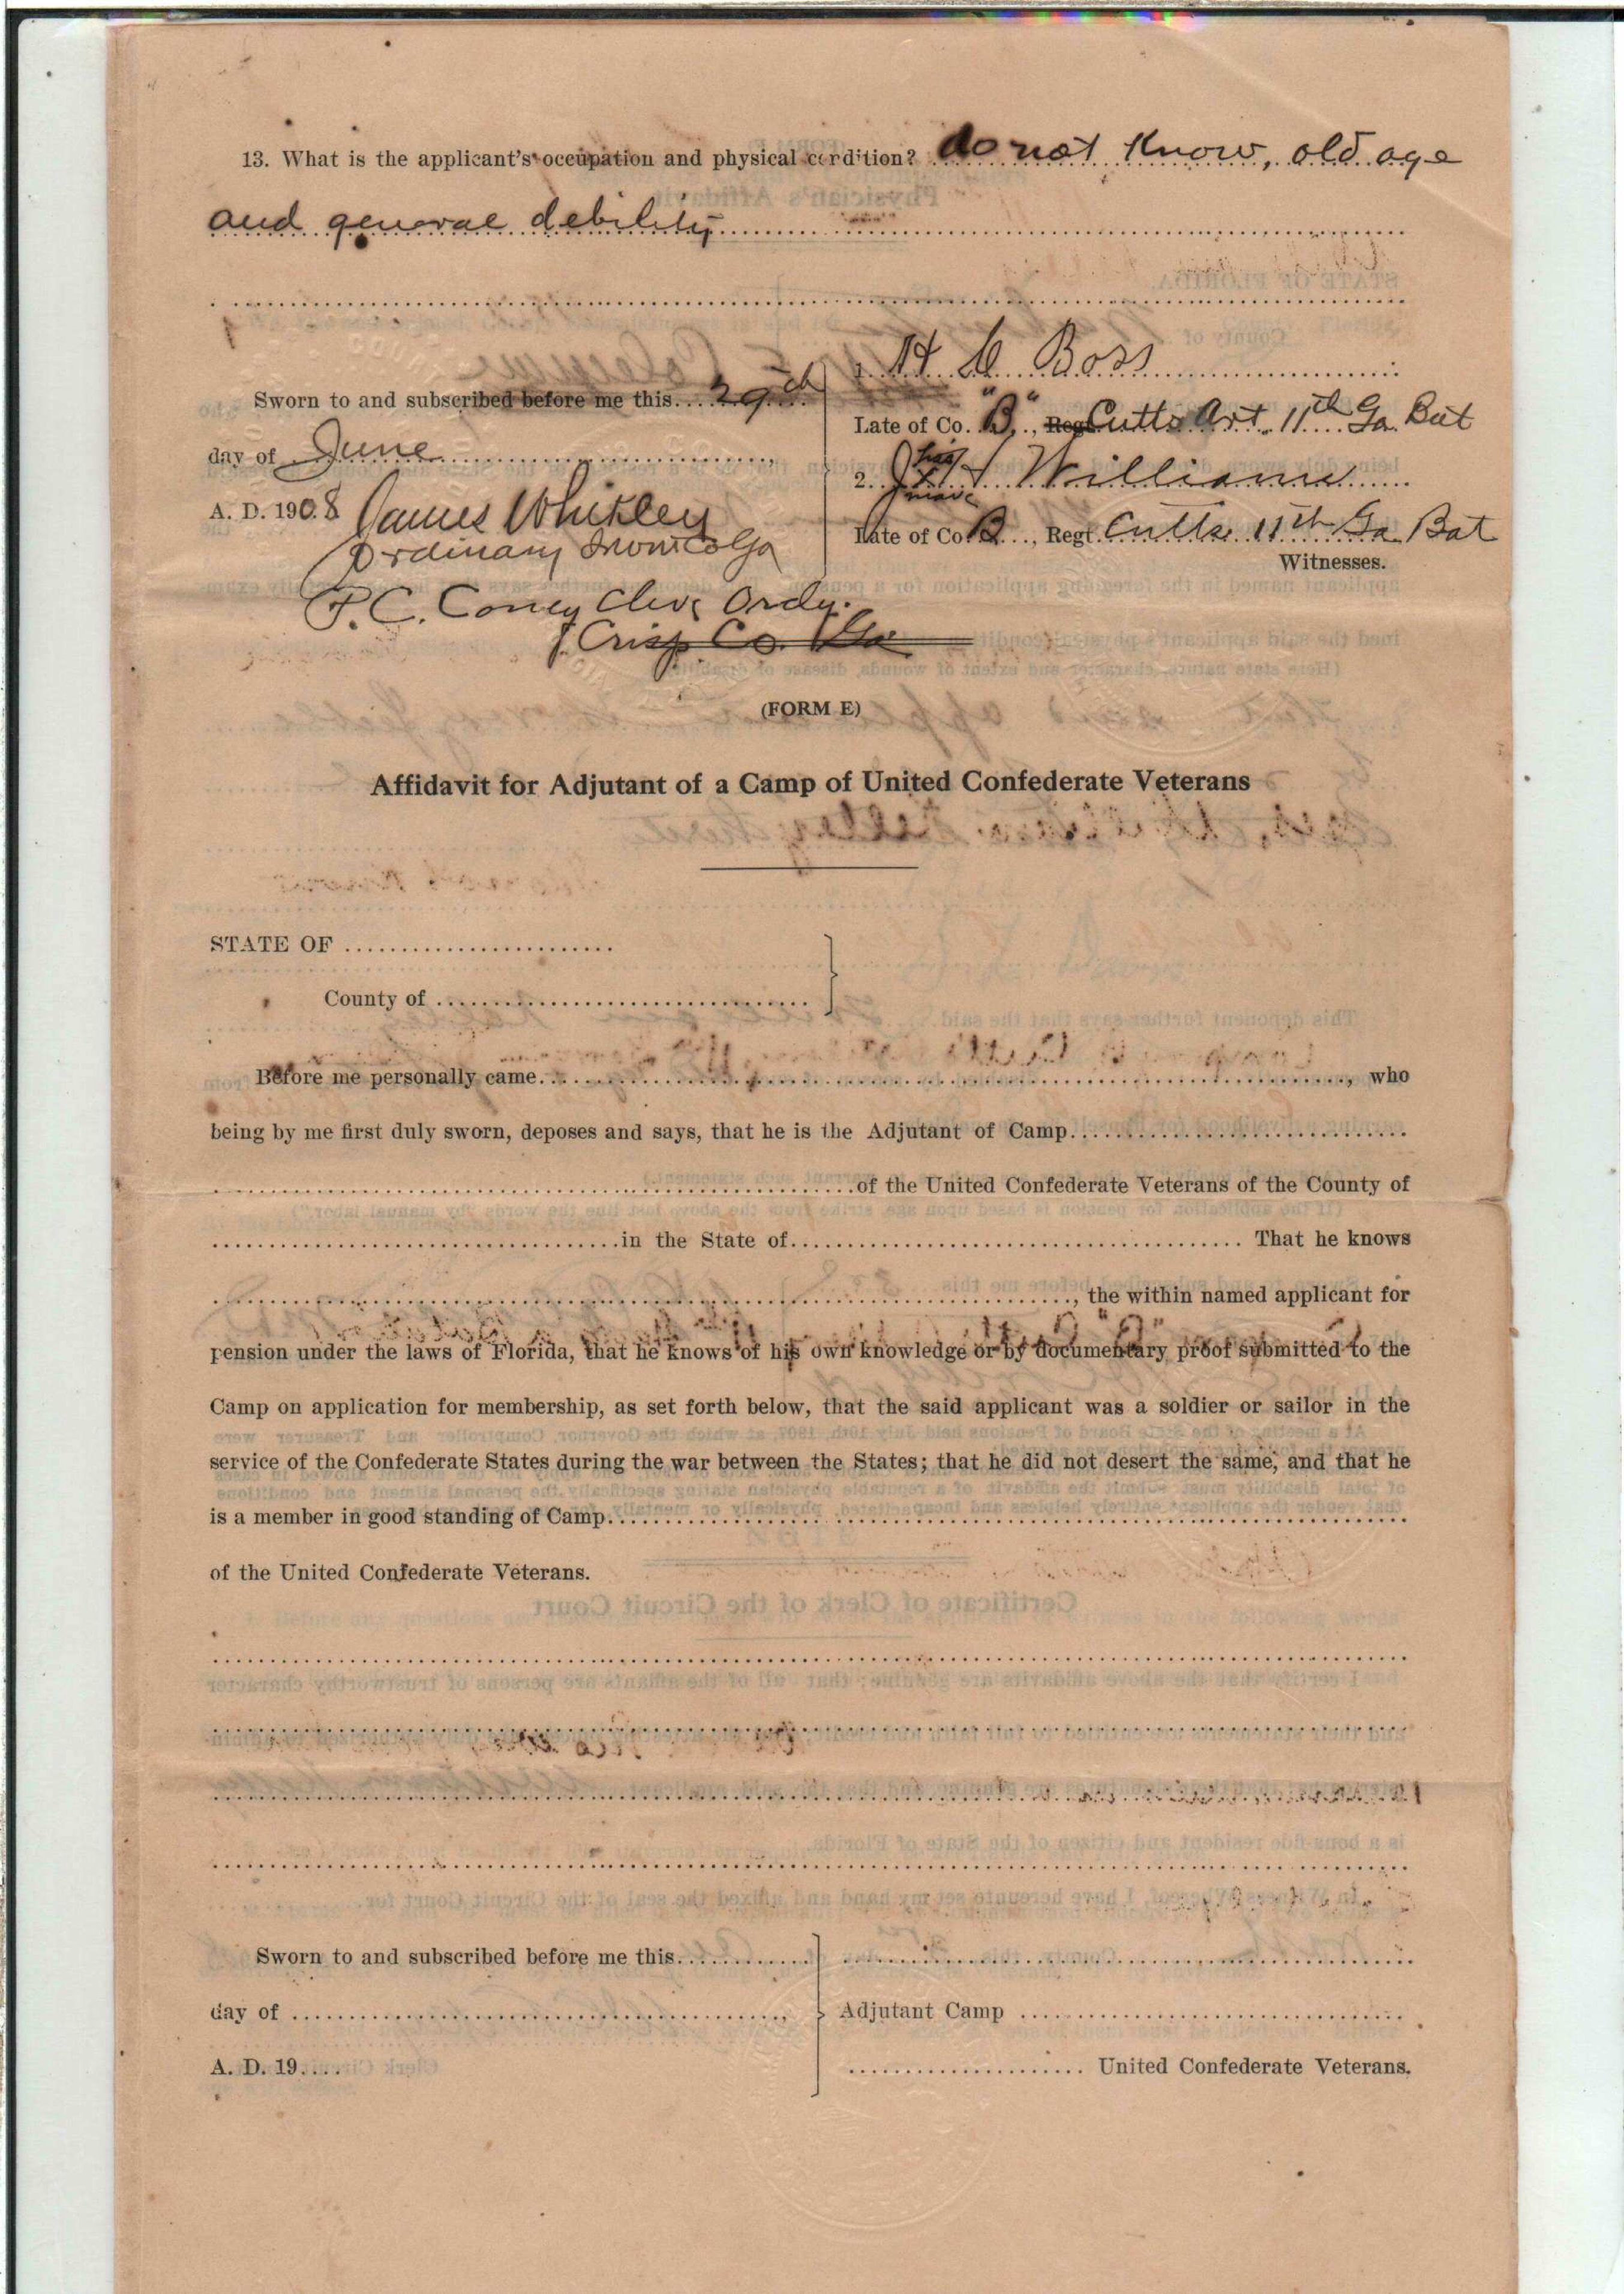 13. What is the applicant's occupation and physical condition? do not Know, old age
and general debility
1. H C Boss
Sworn to and subscribed before me this 29th
Late of Co. "B", Reg. Cutts Art. 11th Ga Bat
day of June
2. J H Williams
his
x
mark
A. D. 1908
James Whitley
Ordinary Irwin Co Ga
Late of Co. B, Regt. Cutts 11th Ga Bat
Witnesses.
P. C. Coney Clerk Ordy.
Crisp Co. Ga
(FORM E)
Affidavit for Adjutant of a Camp of United Confederate Veterans
STATE OF
County of
Before me personally came, who
being by me first duly sworn, deposes and says, that he is the Adjutant of Camp
of the United Confederate Veterans of the County of
in the State of That he knows
, the within named applicant for
pension under the laws of Florida, that he knows of his own knowledge or by documentary proof submitted to the
Camp on application for membership, as set forth below, that the said applicant was a soldier or sailor in the
service of the Confederate States during the war between the States; that he did not desert the same, and that he
is a member in good standing of Camp
of the United Confederate Veterans.
Sworn to and subscribed before me this
day of ,
Adjutant Camp
A. D. 19
United Confederate Veterans.